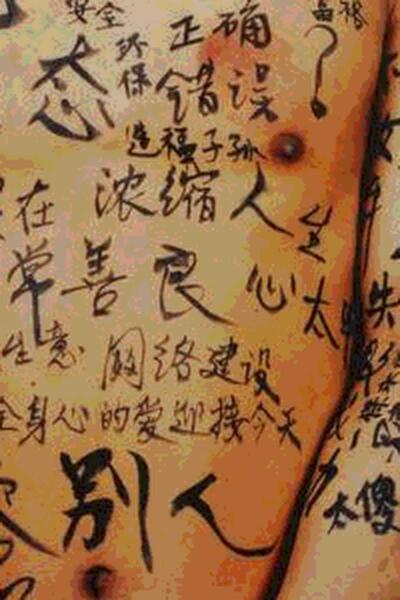 安全
正确
环保
态
错误
?
造福子孙
在
浓缩人
生
常善良
心
太
失
生意
网络建设
全身心的爱迎接今天
别人
太傻